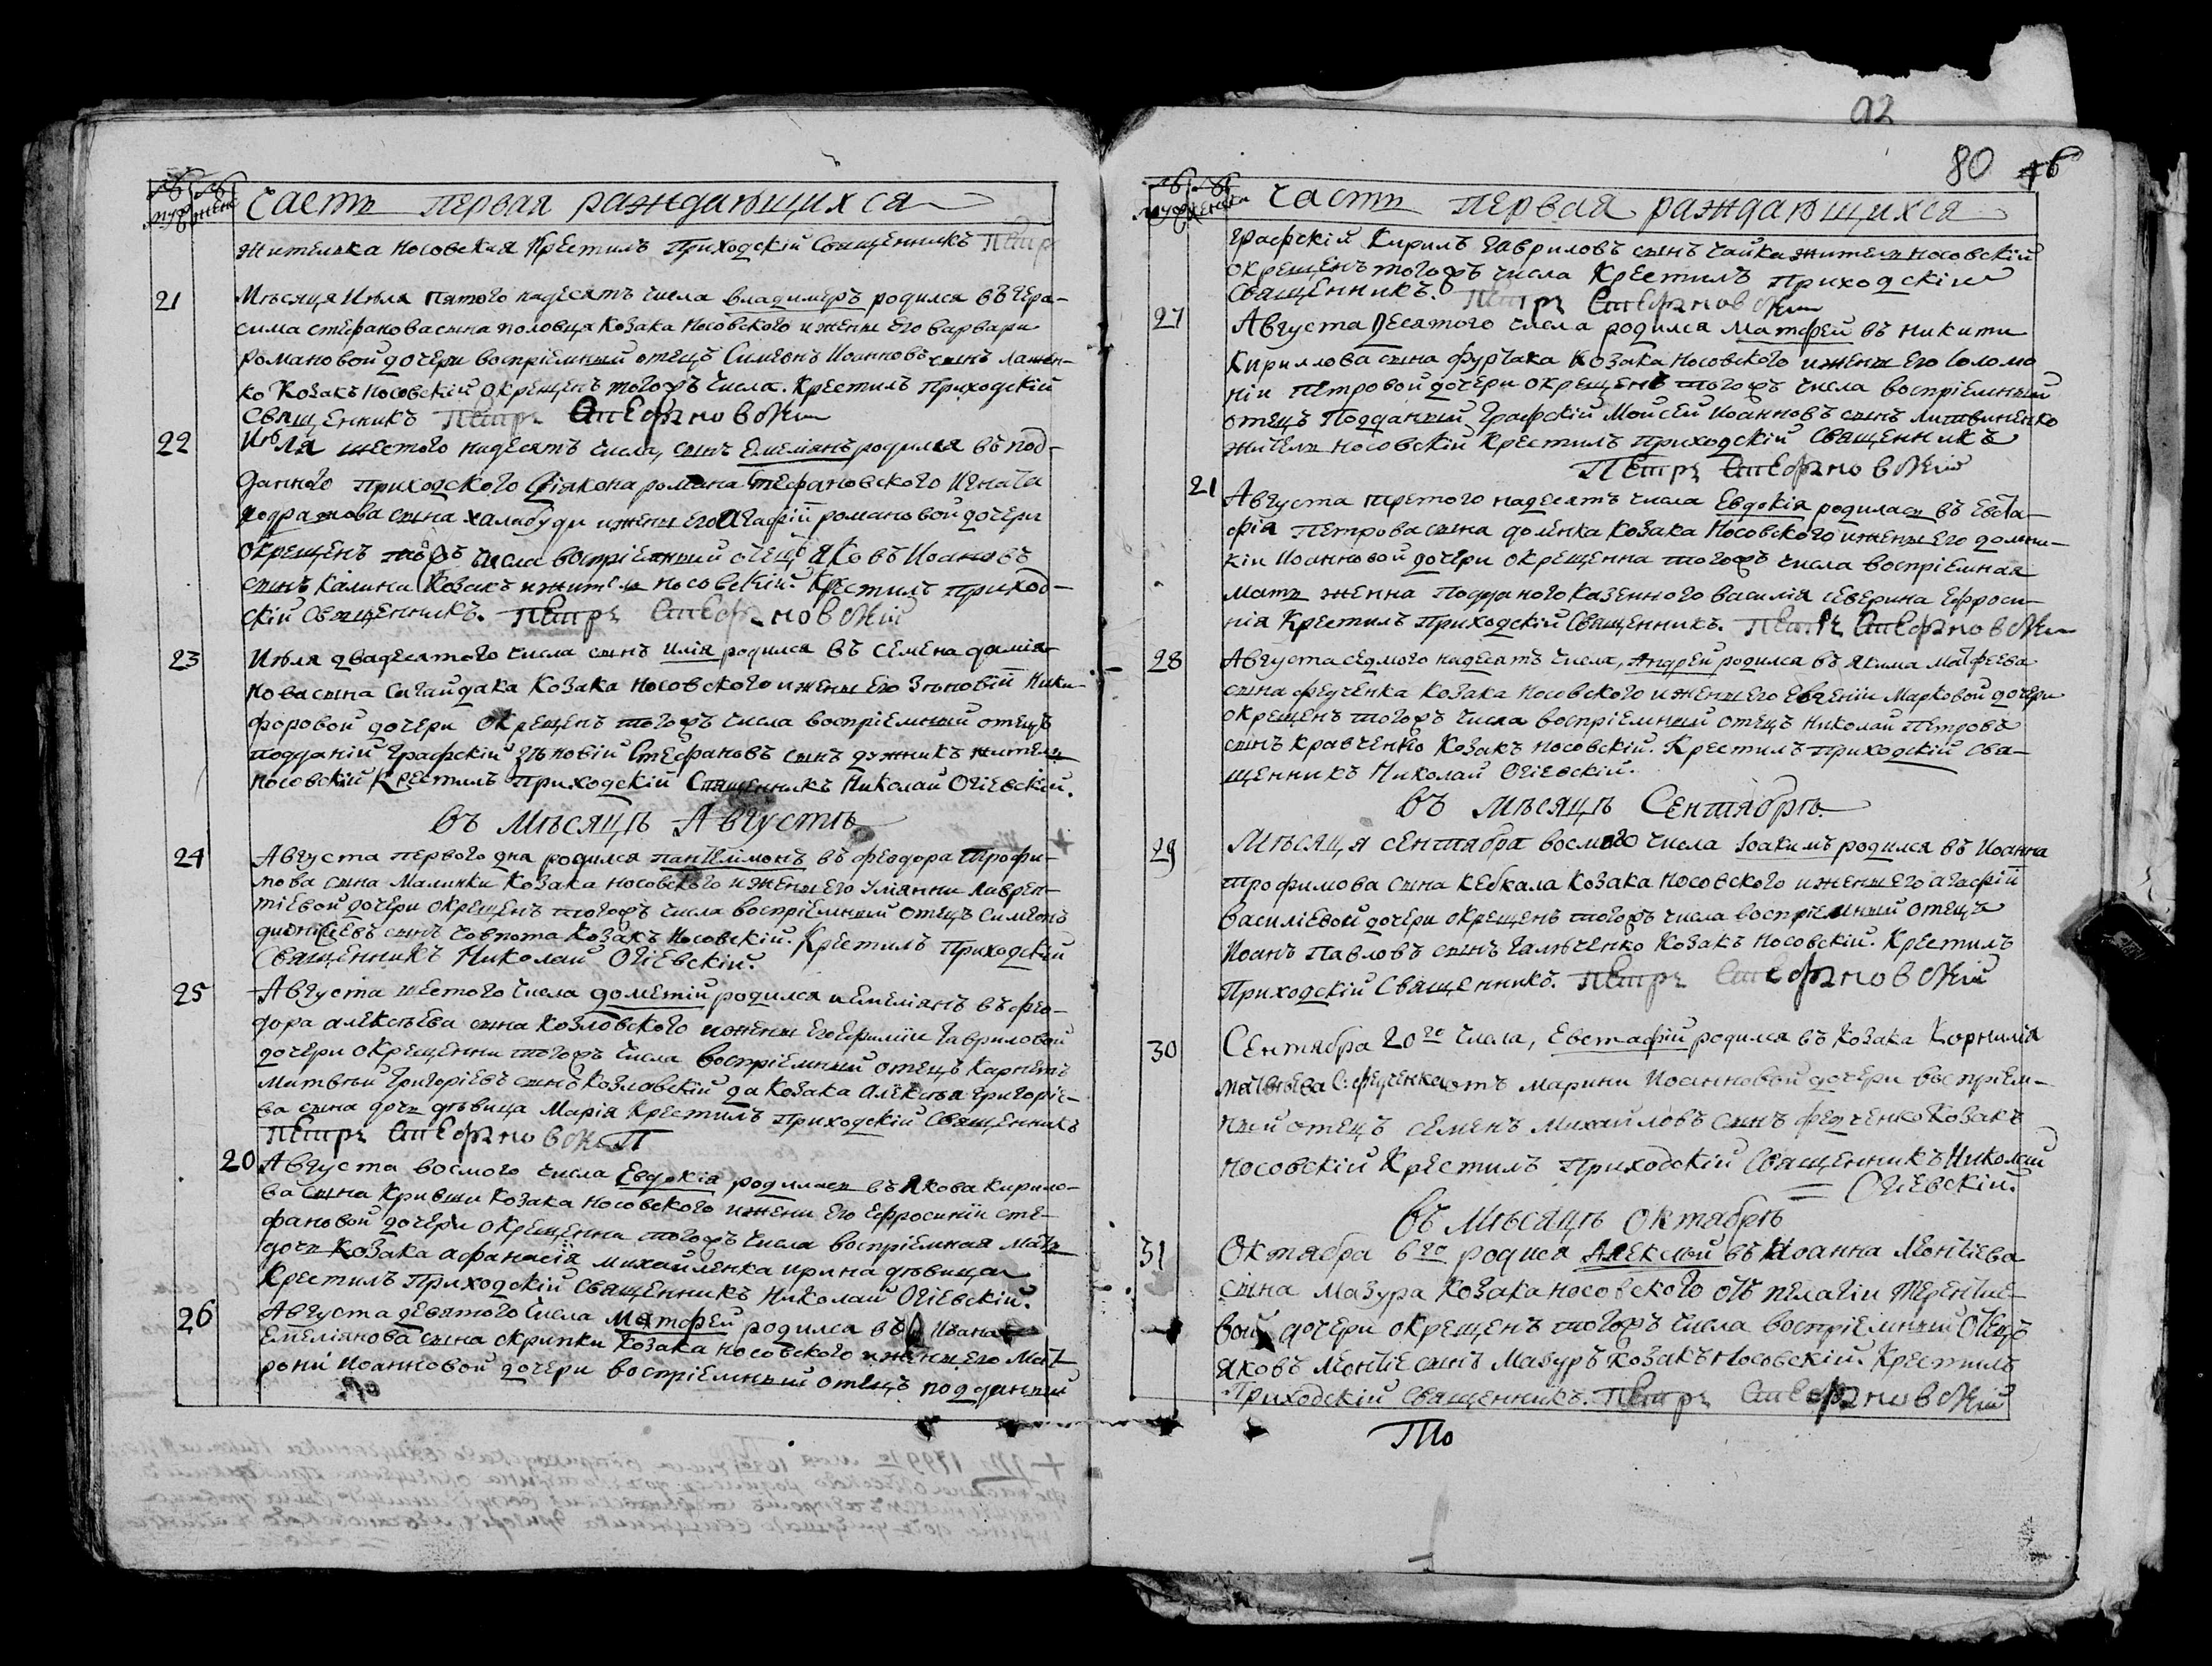 Часть первая раждающихся
жителка Носовская Крестилъ Приходскій Священникъ Петръ
21 Мѣсяця Июля пятого надесять числа владимеръ родился въ Гера-
сима стефанова сына половця Козака Носовского и жены Его варвари
романовой дочери воспріемный отецъ Симеонъ Иоанновъ сынъ лашен-
ко Козакъ Носовскій окрещенъ тогожъ числа. Крестилъ Приходскій
Священникъ Петръ Стефановскій
22 Июля шестого надесять числа, сынъ Емеліянъ родился въ под-
данного приходского діякона романа Стефановского Игната
кодратова сына халабуди и жены Его Агафіи романовой дочери
окрещенъ тогожъ числа воспріемный отецъ яковъ Иоановъ
сынъ Калина Козакъ и житель носовскій. Крестилъ приход-
скій священникъ. Петръ Стефановскій
23 Июля двадесятого числа сынъ илія родился въ семена даміа-
нова сына Сагайдака Козака Носовского и жены Его Зѣновіи Ники-
форовой дочери окрещенъ тогожъ числа воспріемный отецъ
подданій Графскій Зѣновій Стефановъ сынъ дужникъ житель
носовскій Крестилъ Приходскій Священникъ Николай Огіевскій.
въ Мѣсяцѣ Августѣ
24 Августа первого дня родился пантелимонъ въ феодора трофи-
мова сына Малинки Козака носовского и жены Его Уліянни Лаврен-
тіевой дочери окрещенъ тогожъ числа воспріемный отецъ Симеонъ
дионисіевъ сынъ човпота Козакъ Носовскій. Крестилъ Приходскій
Священникъ Николай Огіевскій.
25 Августа шестого числа дометій родился и Емеліянъ въ фео-
дора алексѣева сына Козловского и жены Его Ефиміи Гавриловой
дочери окрещенни тогожъ числа воспріемный отецъ
Матвѣй Григоріевъ сынъ Козловскій да Козака Алексѣя григоріе-
ва сына дочь дѣвица Марія Крестилъ Приходскій Священникъ
Петръ Стефановск П
20 Августа восмого числа Евдокія родилась въ якова кирило-
ва сына Кривши Козака носовского и жени Его Ефросиніи сте-
фановой дочери окрещенна тогожъ числа воспріемная мать
дочь Козака афанасія михайленка ирина дѣвица
Крестилъ Приходскій Священникъ Николай Огіевскій.
26 Августа девятого числа Матфей родился въ Иоана
Емеліянова сына скрипки Козака носовского и жены его Мат
рони Иоанновой дочери воспріемный отецъ подданый
80
Часть первая раждающихся
графскій Кирилъ Гавриловъ сынъ чайка житель носовскій
окрещенъ тогожъ числа Крестилъ Приходскій
Священникъ. Петръ Стефановскій
27 Августа Десятого числа родился матфей въ никити
Кириллова сына фурсака Козака Носовского и жены Его Соломо
ніи Петровой дочери окрещенъ тогожъ числа воспріемный
отецъ Подданый Графскій Мойсей Иоанновъ сынъ Литвиненко
житель носовскій Крестилъ приходскій Священникъ
Петръ Стефановскій
21 Августа третого надесять числа Евдокія родилась въ Евста-
фія Петрова сына доленка Козака Носовского и жены Его домни-
кіи Иоанновой дочери окрещенна тогожъ числа воспріемная
мать женна Подданого казенного василія северина Ефроси-
нія Крестилъ Приходскій Священникъ. Петръ Стефановскій
28 Августа седмого надесять числа, Андрей родился въ якима матфеева
сына федченка Козака носовского и жены Его Евгеніи Марковой дочери
окрещенъ тогожъ числа воспріемный отецъ николай Петровъ
сынъ кравченко Козакъ носовскій. Крестилъ приходскій Свя-
щенникъ Николай Огіевскій.
въ Мѣсяцѣ Сентябрѣ
29 Мѣсяця сентября восмого числа Іоакимъ родился въ Иоанна
трофимова сына кебкала Козака носовского и жены Его агафіи
василіевой дочери окрещенъ тогожъ числа воспріемный отецъ
Иоанъ Павловъ сынъ Галѣченко Козакъ носовскій. Крестилъ
Приходскій Священникъ. Петръ Стефановскій
30 Сентября 20го числа, Евстафій родился въ козака Корнилія
матвѣева С. федченка отъ Марини Иоанновой дочери воспріем-
ный отецъ семенъ михайловъ сынъ федченко Козакъ
носовскій Крестилъ Приходскій Священникъ Николай
Огіевскій.
въ Мѣсяцѣ Октябрѣ
31 Октября 6го родися Алексѣй въ Иоанна Леонтіева
сына Мазура Козака носовского отъ пелагіи терентие-
вой дочери окрещенъ тогожъ числа воспріемный отецъ
яковъ леонтіе сынъ Мазуръ козакъ Носовскій. Крестилъ
Приходскій Священникъ. Петръ Стефановскій
То